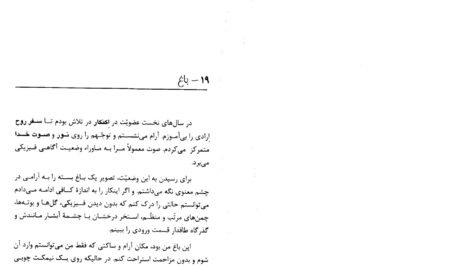 ۱۹ – باغ
در سال‌های نخست عضویّت در اکنکار در تلاش بودم تا سفر روح
ارادی را بیآموزم. آرام می‌نشستم و توجّهم را روی نور و صوت خدا
متمرکز می‌کردم. صوت معمولاً مرا به ماوراء وضعیت آگاهی فیزیکی
می‌برد.
برای رسیدن به این وضعیّت، تصویر یک باغ بسته را به آرامی در
چشم معنوی نگه می‌داشتم. و اگر اینکار را به اندازهٔ کافی ادامه می‌دادم
می‌توانستم حالتی را درک کنم که بدون دیدن فیزیکی، گل‌ها و بوته‌ها،
چمن‌های مرتّب و منظّم، استخر درخشان با چشمهٔ آبشار مانندش و
گذرگاه طاقدار قسمت ورودی را ببینم.
این باغ من بود، مکان آرام و ساکتی که فقط من می‌توانستم وارد آن
شوم و بدون مزاحمت استراحت کنم. در حالیکه روی یک نیمکت چوبی